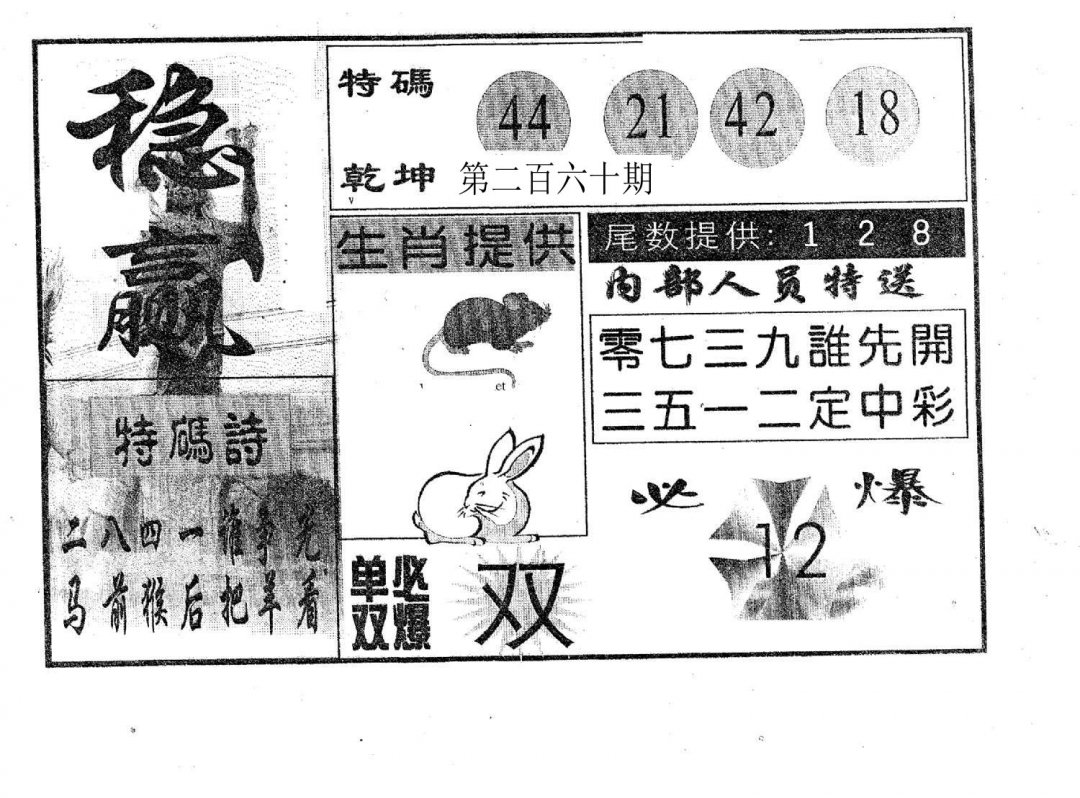 稳
赢
特碼
44 21 42 18
乾坤
第二百六十期
生肖提供
尾数提供: 1 2 8
内部人员特送
零七三九誰先開
三五一二定中彩
特碼詩
二八四一誰爭先
马前猴后把羊看
单双
必爆
双
必爆
12